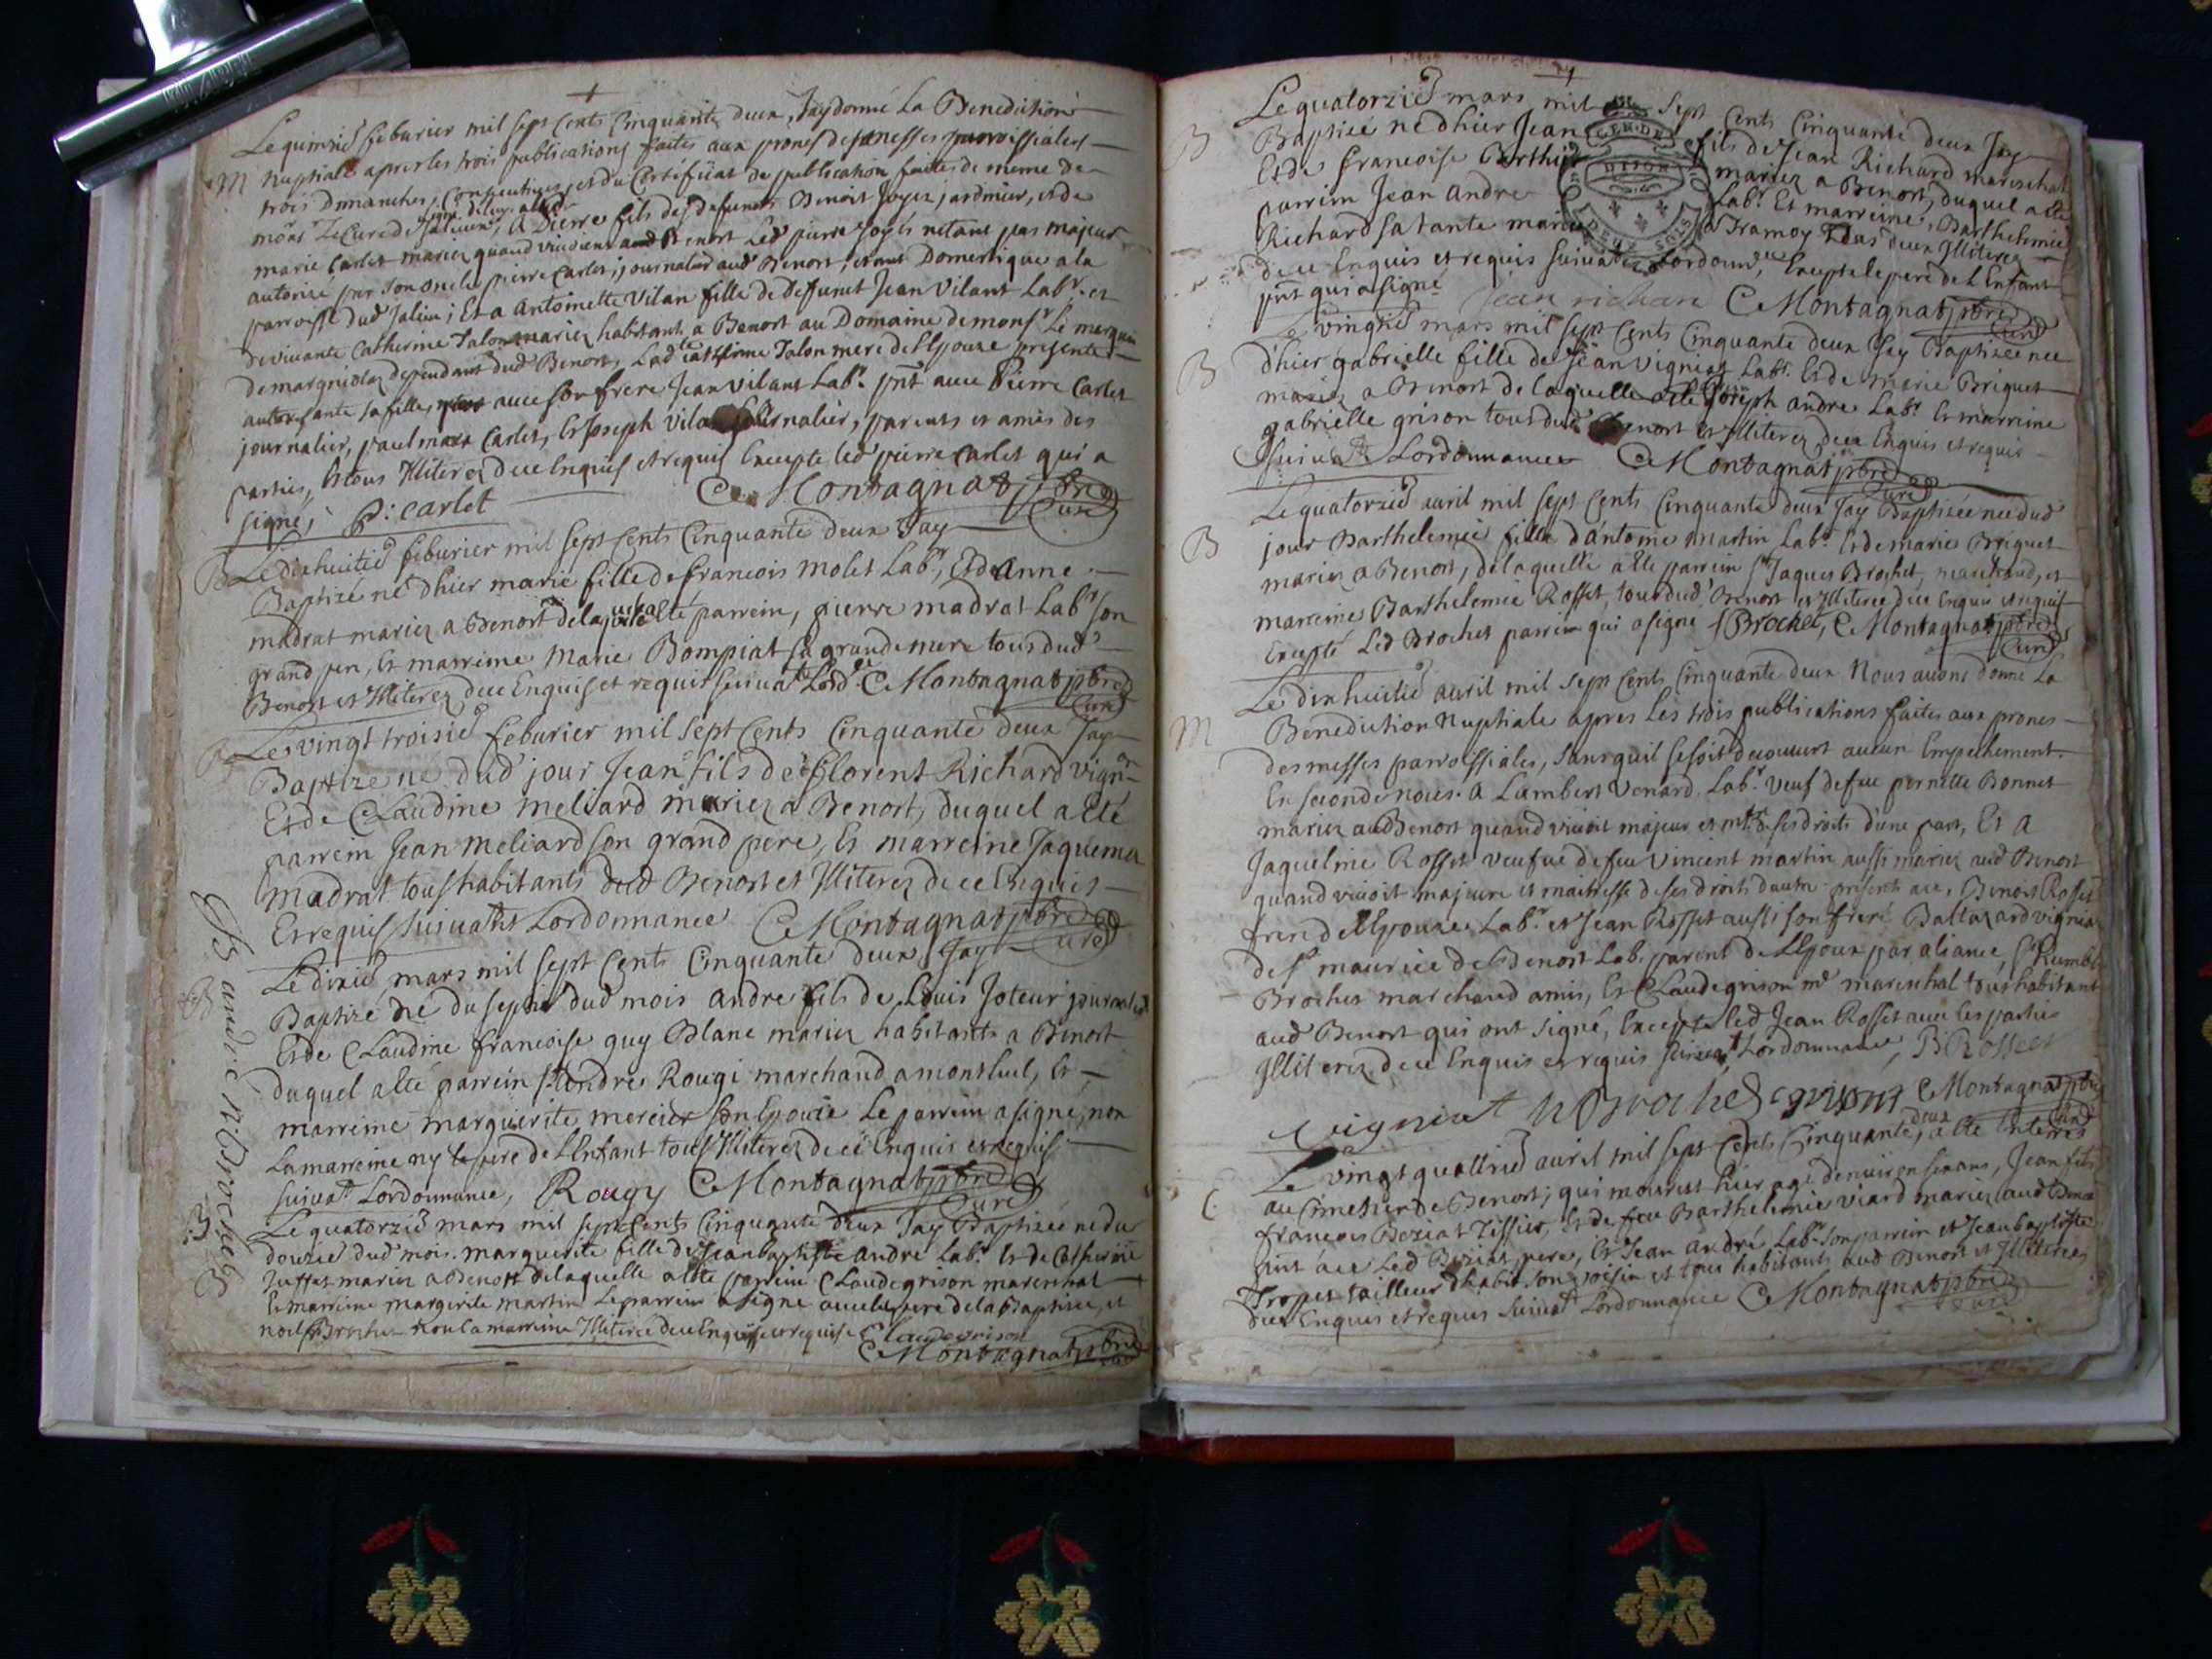 Le quinzie feburier mil sept Cents Cinquante deux, Jay donné La Benediction
M nuptiale apres les trois publications faites aux prones des messes parroissiales
trois Dimanches Consecutives, et du Certificat de publication faites de meme de
Marie Carlet mariez quand vivoient aud Benort Led pierre Joyés netant pas majeur
autorizé par son oncle pierre Carlet, journalier aud Benort, etant Domestique a la
parroisse dud Jalieu; Et a Antoinette Vilan fille de Deffunct Jean Vilant Labr. et
de vivante Catherine Jalon mariez habitant a Benort au Domaine de monsr Le marquis
de margniolaz dependant dud Benort, Lad Catherine Jalon mere de l'Epouze presente
autorisante sa fille, avec son frere Jean Vilant Labr. pnt avec Pierre Carlet
journalier, paul marc Carlet, Et Joseph Vilan journalier, parents et amis des
parties, Et tous Illiterez de ce Enquis et requis Excepté led pierre Carlet qui a
signé, P: Carlet C. Montagnat ptre Curé
B Le dixhuitie feburier mil sept Cents Cinquante deux Jay
Baptizé né dhier marie fille de francois molet Labr, Et d'Anne
madrat mariez a Benort de laquelle a Eté parrein, pierre madrat Labr son
grand pere, Et marreine Marie Bompiat sa grande mere tous dud
Benort et Illiterez de ce Enquis et requis suivat Lord ce C Montagnat ptre Curé
B Le vingt troisie feburier mil sept Cents Cinquante deux Jay
Baptize né dud jour Jean fils de Florent Richard vignon
Et de Claudine meliard mariez a Benort, duquel a Eté
parrein Jean meliard son grand pere, Et marreine Jaquema
madrat tous habitants dud Benort et Illiterez de ce Enquis
Et requis suivatt Lordonnance C Montagnat ptre Curé
Le dixie mars mil sept Cents Cinquante deux, Jay
B Baptizé né du septie dud mois andre fils de Louis Joteur journalier
Et de Claudine francoise guy Blanc mariez habitants a Benort
duquel a Eté parrein sr Andre Rougi marchand a montluel, Et
marreine marguerite mercier son Epouze Le parrein a signé, non
La marreine ny le pere de L'Enfant tous Illiterez de ce Enquis et requis
suivat Lordonnance, Rougy C Montagnat ptre Curé
B Le quatorzie mars mil sept Cents Cinquante deux Jay Baptizée née du
douzie dud mois. marguerite fille de Jean baptiste andre Labr. Et de Catherine
Juffet mariez a Benort de laquelle a Eté parrein Claude grison mareschal
Et marreine margerite martin Le parrein a signé avec le pere de la Baptizée, et
noel Brochet non La marreine Illiterée de ce Enquise et requise Claude grison
C Montagnat ptre Curé
JB andre N Brochet
Le quatorzie mars mil sept Cents Cinquante deux Jay
B Baptizé né dhier Jean fils de Jean Richard mareschal
Et de francoise Berthier mariez a Benort, duquel a Eté
parrein Jean andre Labr. Et marreine, Barthelemie
Richard sa tante a Tramoy tous deux Illiterez
de ce Enquis et requis suivat Lordonnce, Excepté le pere de L'Enfant
pnt qui a signé Jean richard C Montagnat ptre Curé
GEN. DE DIJON
DEUX SOLS
Le vingtie mars mil sept Cents Cinquante deux Jay Baptizée née
B dhier gabrielle fille de Jean Vigniat Labr. Et de marie Briguet
mariez a Benort de laquelle a Eté Joseph andre Labr Et marreine
gabrielle grison tous dud Benort Et Illiterez de ce Enquis et requis
suivat Lordonnance C Montagnat ptre Curé
Le quatorzie avril mil sept Cents Cinquante deux Jay Baptizée née dud
B jour Barthelemie fille d'antoine martin Labr. Et de marie Briguet
mariez a Benort, de laquelle a Eté parrein sr Jaques Brochet, marchand, et
marreine Barthelemie Rosset, tous dud Benort et Illiterée de ce Enquis et requis
Excepté Led Brochet parrein qui a signé J Brochet, C Montagnat ptre Curé
Le dixhuitie avril mil sept Cents Cinquante deux Nous avons donné La
M Benediction Nuptiale apres les trois publications faites aux prones
des messes parroissiales, sans quil se soit decouvert aucun Empechement.
En seconde noces. a Lambert Venard. Labr. veuf de feue pernette Bonnet
mariez aud Benort quand vivoit majeur et mtre de ses droits d'une part, Et a
Jaqueline Rosset veufve de feu Vincent martin aussi mariez aud Benort
quand vivoit majeure et maitresse de ses droits dautre presents a ce, Benoit Rosset
frere de l'Epouze Labr. et Jean Rosset aussi son frere Baltazard vigniat
de st maurice de Benort Lab. parent de L'Epoux par aliance, sr humbt
Brochet marchand amis, Et Claude grison me mareschal tous habitant
aud Benort qui ont signé, Excepté led Jean Rosset avec les parties
Illiterez de ce Enquis et requis suivat Lordonnance, B Rosset
Vigniat h Brochet grison C Montagnat ptre Curé
Le vingt quattrie avril mil sept Cents Cinquante deux, a Eté Enterré
C. au Cimetier de Benort; qui mourut hier agé denviron six ans, Jean fils
francois Beziat Tissier, Et de feu Barthelemie viard mariez aud Benort
pnt a ce Led Beziat pere, Et Jean andré Labr. son parrein et Jean baptiste
Tropet tailleur d'habit son voisin et tous habitants aud Benort et Illiterez
de ce Enquis et requis suivat Lordonnance C Montagnat ptre Curé